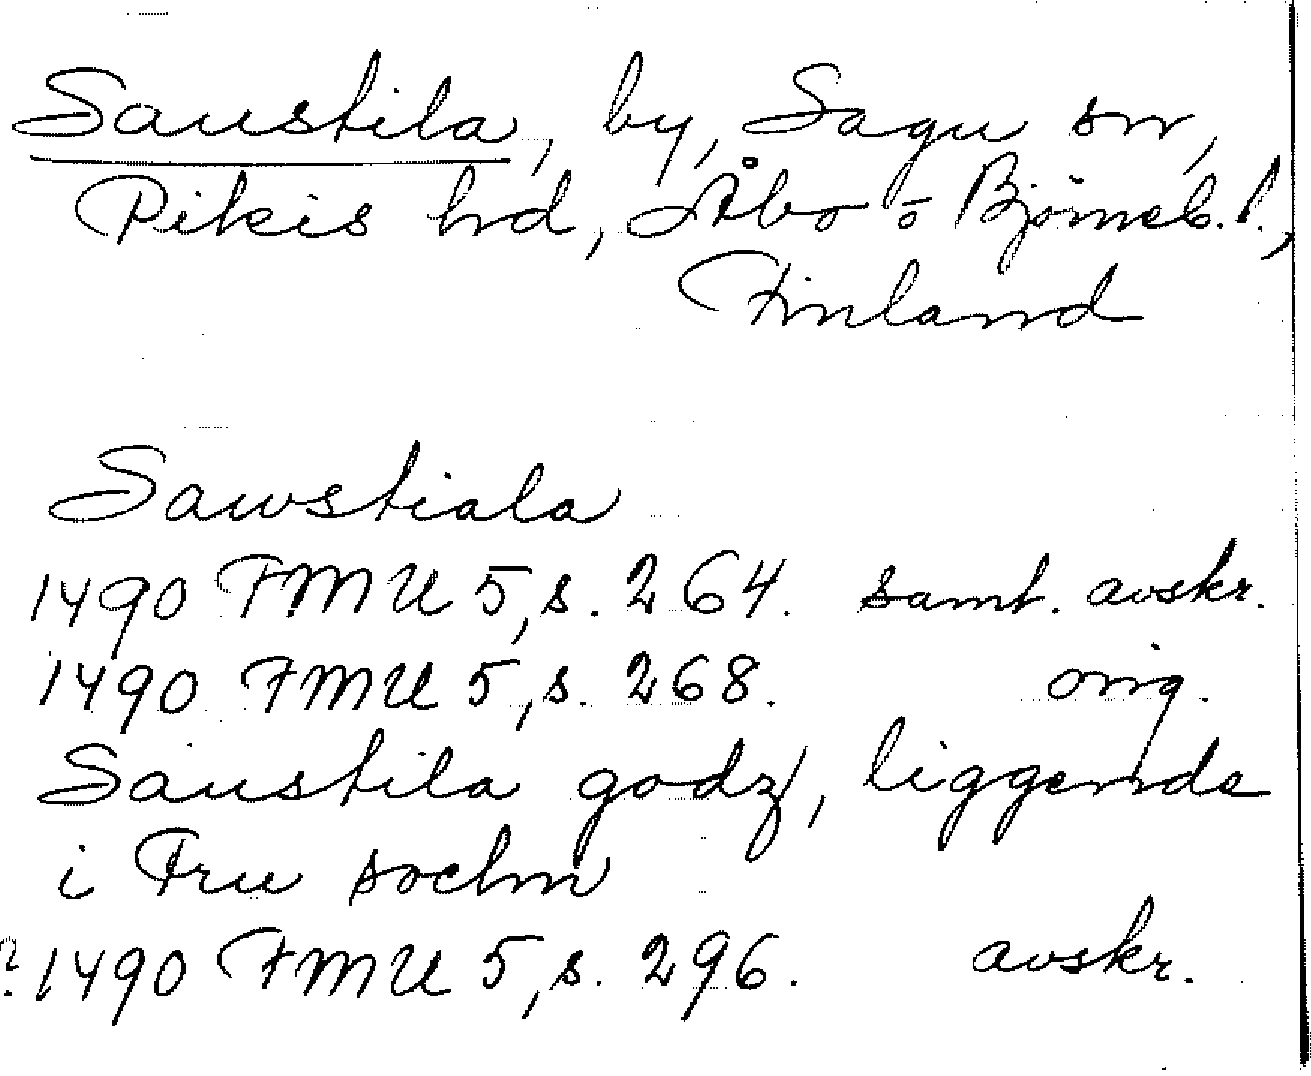 Saustila, by, Sagu sn,
Pikis hd, Åbo o Björneb. l.,
Finland
Sawstiala
1490 FMU 5, s. 264. samt. avskr.
1490 FMU 5, s. 268. orig.
Saustila godz, liggende
i Fru sochn
? 1490 FMU 5, s. 296. avskr.